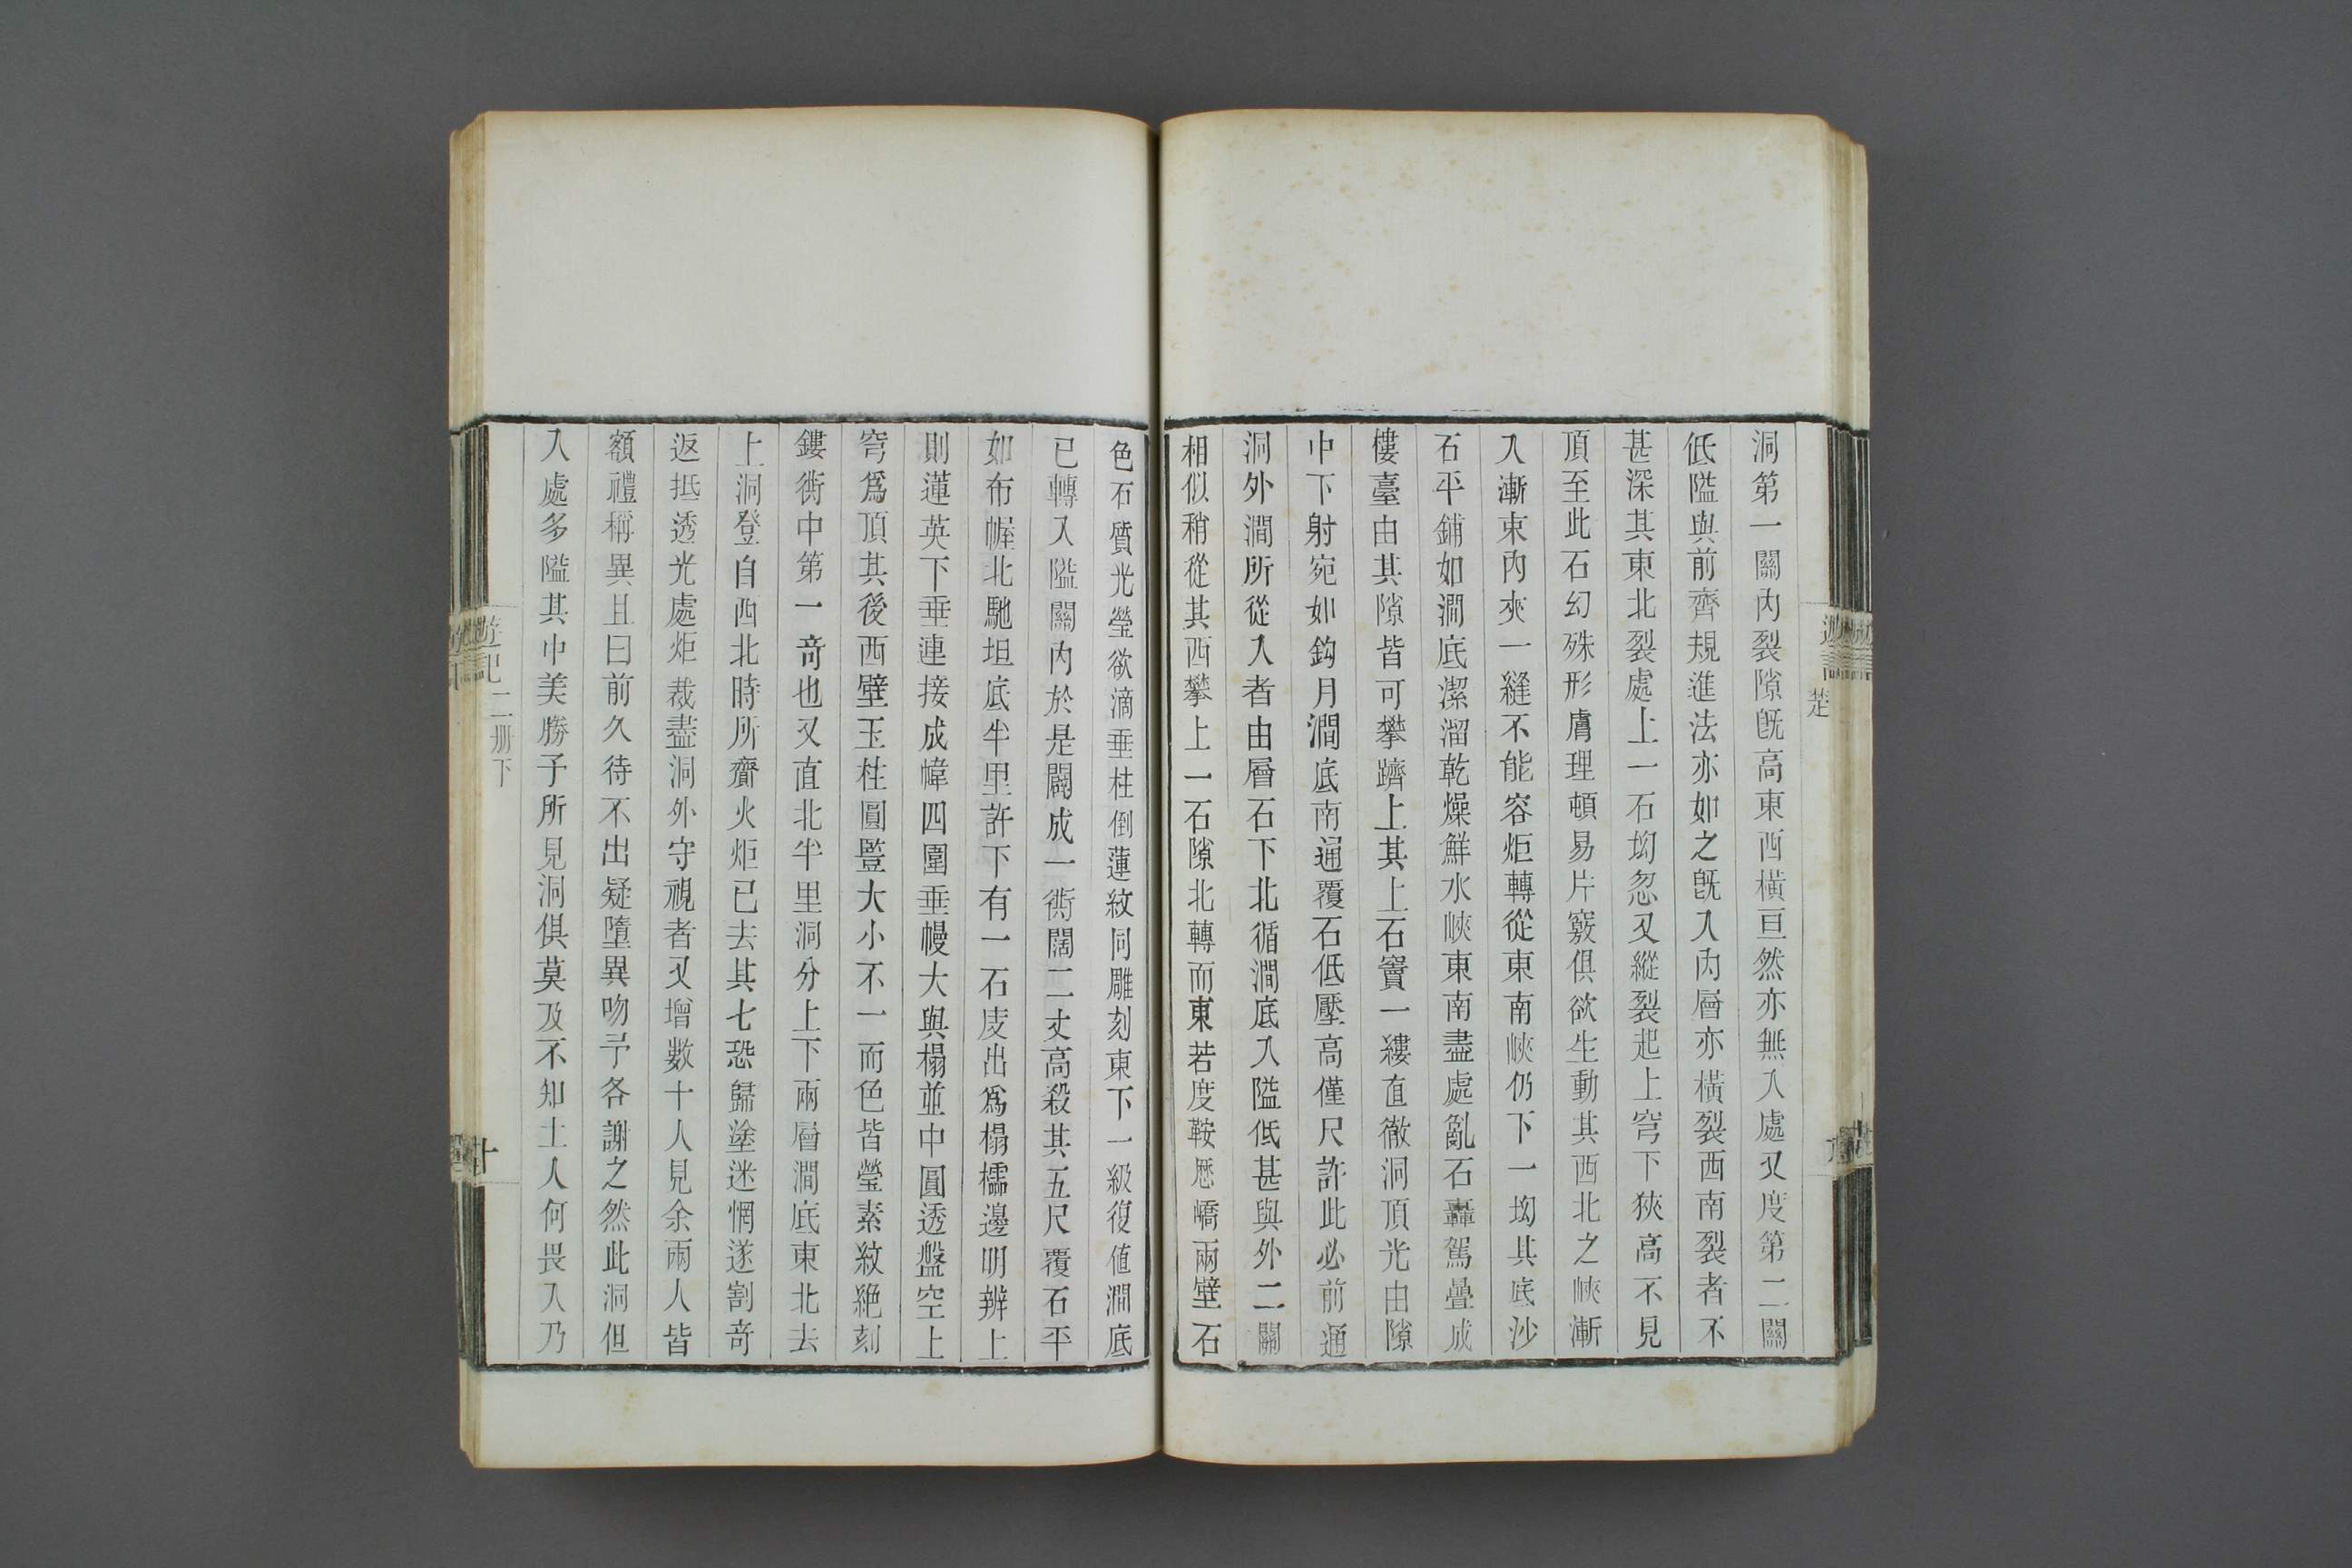 洞第一關內裂隙旣高東西橫亘然亦無入處又度第二關
低隘與前齊規進法亦如之旣入內層亦橫裂西南裂者不
甚深其東北裂處上一石坳忽又縱裂起上穹下狹高不見
頂至此石幻殊形膚理頓易片竅俱欲生動其西北之峽漸
入漸束內夾一縫不能容炬轉從東南峽仍下一坳其底沙
石平鋪如澗底潔溜乾燥鮮水峽東南盡處亂石轟駕疊成
樓臺由其隙皆可攀躋上其上石竇一縷直徹洞頂光由隙
中下射宛如鈎月澗底南通覆石低壓高僅尺許此必前通
洞外澗所從入者由層石下北循澗底入隘低甚與外二關
相似稍從其西攀上一石隙北轉而東若度鞍歷嶠兩壁石
色石質光瑩欲滴垂柱倒蓮紋同雕刻東下一級復值澗底
已轉入隘關內於是闢成一衖闊二丈高殺其五尺覆石平
如布幄北馳坦底半里許下有一石庋出為榻檽邊明辨上
則蓮英下垂連接成幃四圍垂幔大與榻並中圓透盤空上
穹為頂其後西壁玉柱圓豎大小不一而色皆瑩素紋絕刻
鏤衖中第一奇也又直北半里洞分上下兩層澗底東北去
上洞登自西北時所齎火炬已去其七恐歸塗迷惘遂割奇
返抵透光處炬裁盡洞外守視者又增數十人見余兩人皆
額禮稱異且曰前久待不出疑墮異吻予各謝之然此洞但
入處多隘其中美勝予所見洞俱莫及不知土人何畏入乃
遊記
二冊下
楚